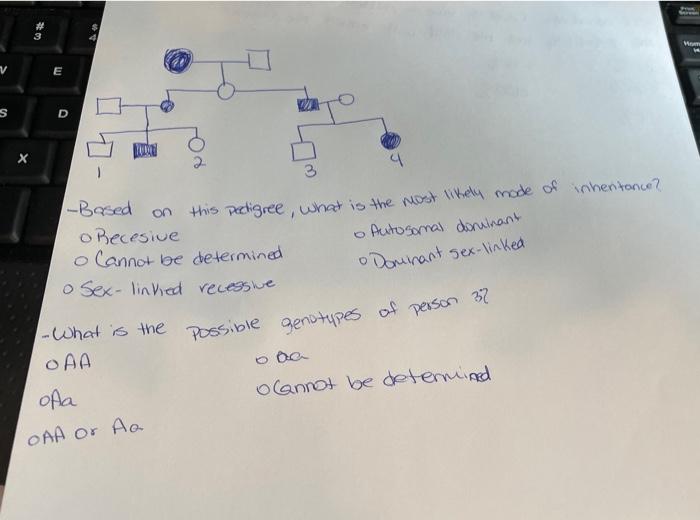 #
3
$
4
V
E
S
D
X
Home
1
2
3
4
-Based on this pedigree, what is the most likely mode of inheritance?
o Recesive
o Autosomal dominant
o Cannot be determined
o Dominant sex-linked
o Sex-linked recessive
-What is the possible genotypes of person 3?
o AA
o aa
o Aa
o Cannot be determined
o AA or Aa